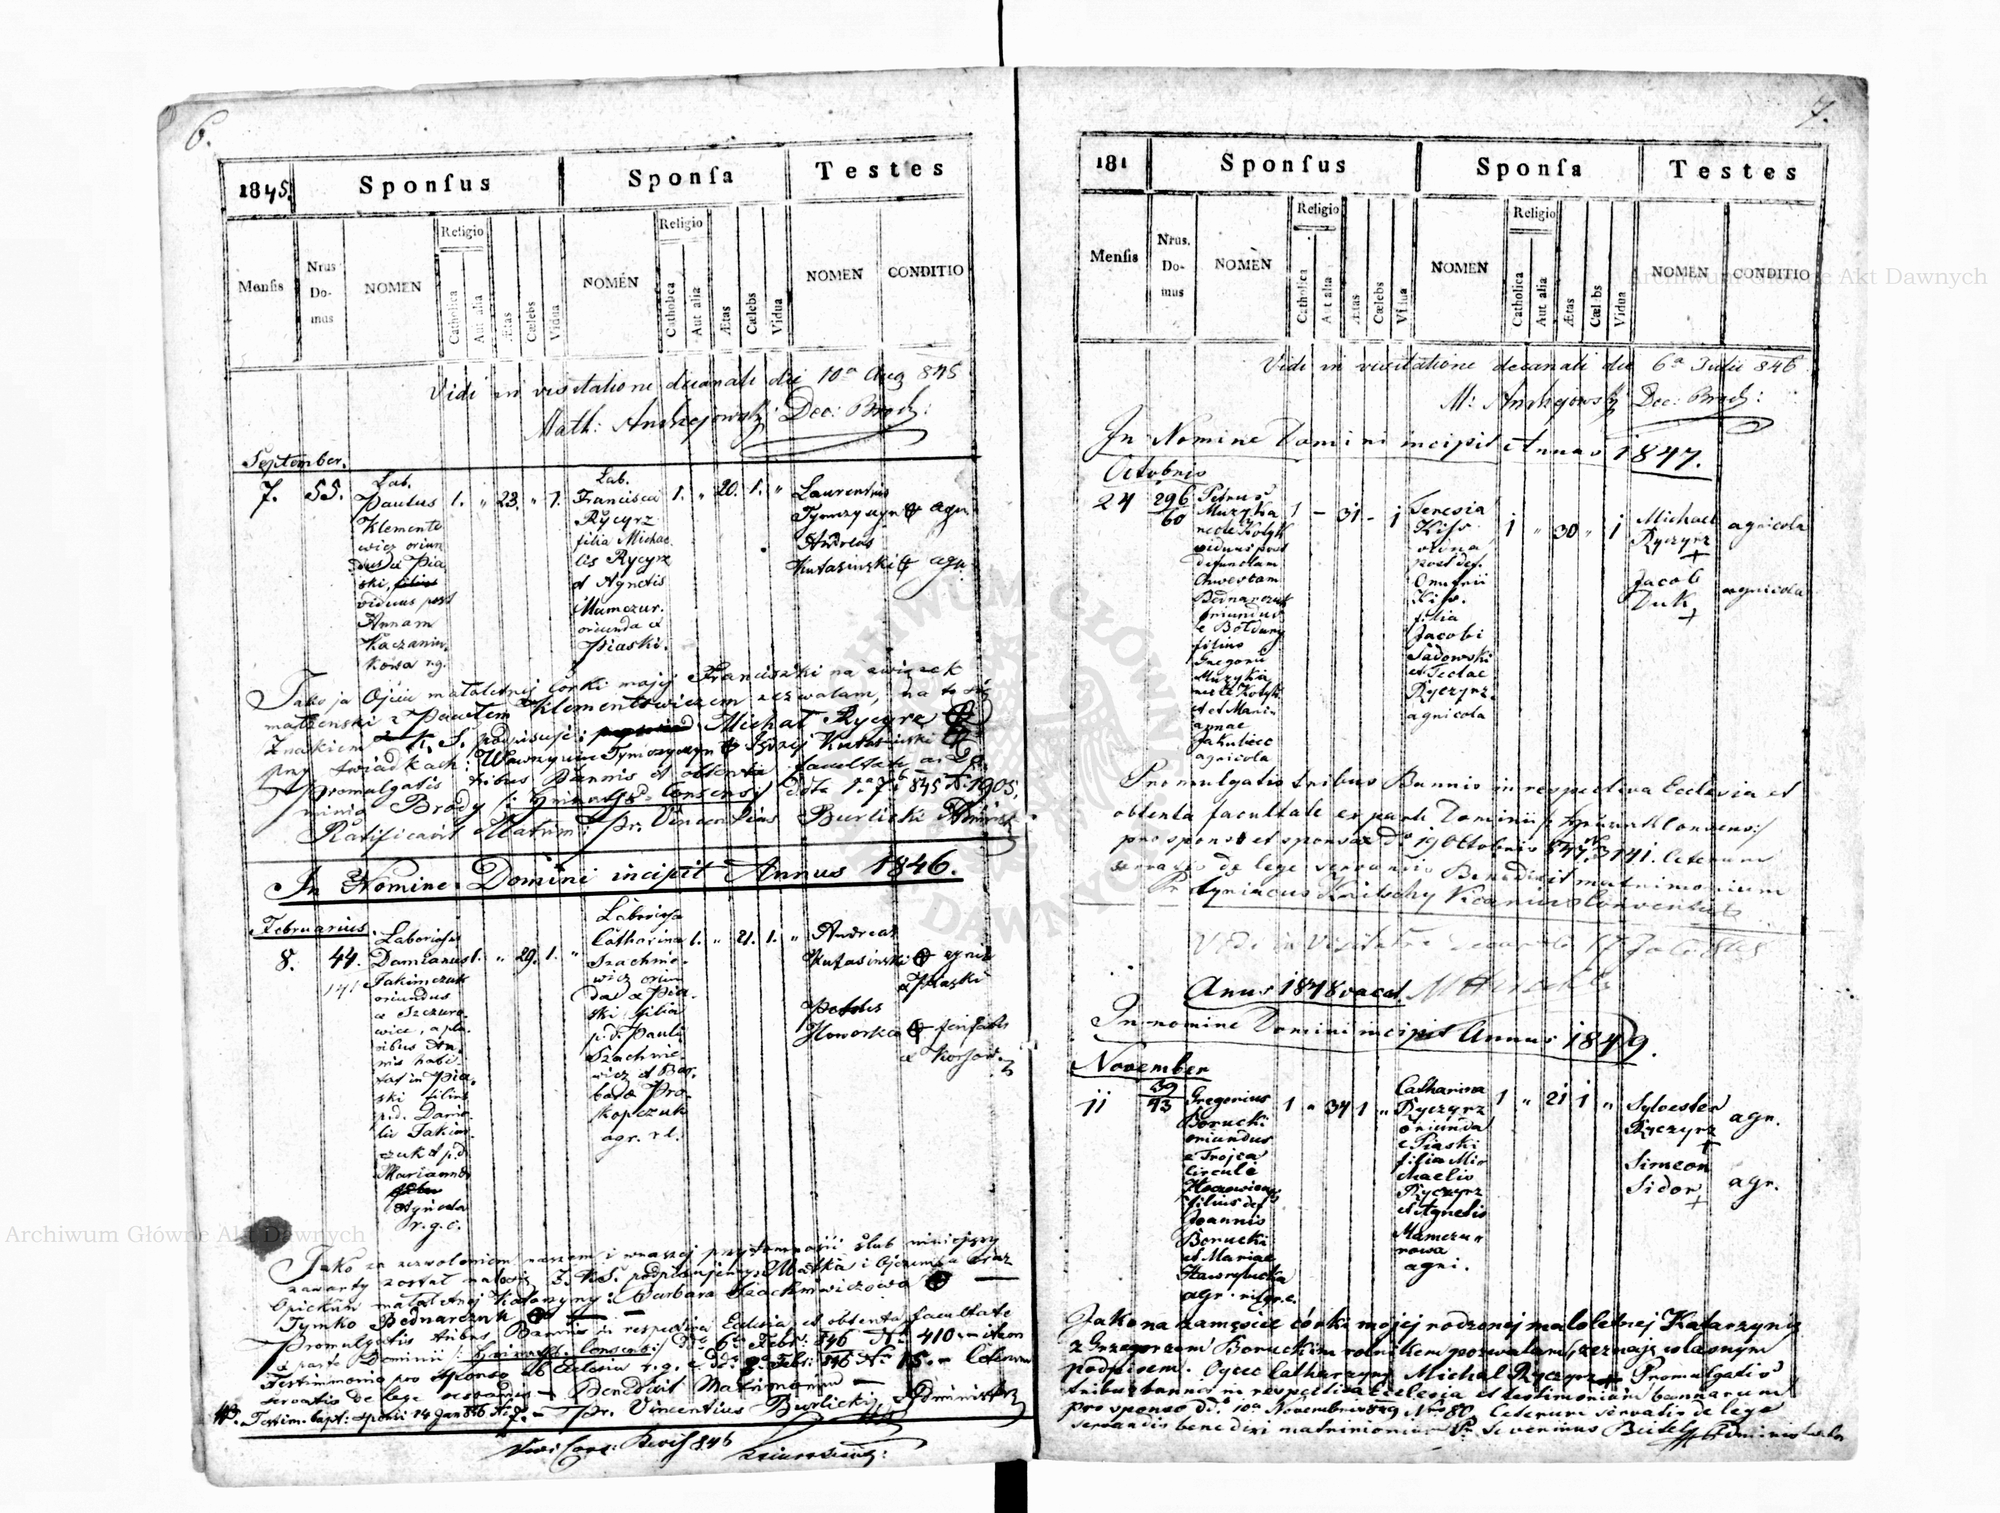 6.
1845.
Sponſus
Sponſa
Testes
Menſis
Nrus Do- mus
NOMEN
Religio
Catholica
Aut alia
Ætas
Cælebs
Vidua
NOMEN
Religio
Catholica
Aut alia
Ætas
Cælebs
Vidua
NOMEN
CONDITIO
Vidi in visitatione decanali die 10a Aug 845
Math: Andrzejowski Dec: Brody:
September.
7. 55.
Lab.
Paulus
Klemento
wicz oriun
dus de Pia
ski,
viduus post
Annam
Kaczanow
kowa r.g.
1. " 23. " 1.
Lab.
Francisca
Rycyrz
filia Michae
lis Rycyrz
et Agnetis
Mamczur.
oriunda ex
Piaski.
1. " 20. 1. "
Laurentius
Tymczyszyn agr.
Andreas
Kutasinski agr.
Jako ja Ojciec małoletniej córki mojej Franciszki na związek
małżenski z Pawłem Klementowiczem zezwalam, na to się
Znakiem podpisuję: Michał Rycyrz
przy świadkach: Wawrzyniec Tymczyszyn Jędrzej Kutasinski
Promulgatis tribus Bannis et obtenta facultate a Do
minio Brody /: Heiraths-Consens :/ 845 N. 1905.
Ratificavit Matrim: Pr. Vincentius Burlicki Administr
In Nomine Domini incipit Annus 1846.
Februarius.
8. 44.
141
Laboriosus
Damianus
Jakimczuk
oriundus
a Szczuro
wice, a plu
ribus An
nis habi
tat in Pia
ski filius
p.d. Dani
lis Jakim
czuk et p.d.
Marianna
Agricola
r.g.c.
1. " 29. 1. "
Laboriosa
Catharina
Szachnie
wicz oriun
da ex Pia
ski filia
p.d. Pauli
Szachnie
wicz et Bar
bara Pro
kopczuk
agr. r.l.
1. " 21. 1. "
Andreas
Kutasinski agric
a Piaski
Petrus
Howorka
Jako za zezwoleniem naszem i w naszej przytomności ślub niniejszy
zawarty został podpisujemy: Matka i Ojczym
Opiekun małoletniej Katarzyny: Barbara Szachniewiczowa
Tymko Bednarczuk
Promulgatis tribus Bannis in respectiva Ecclesia, et obtenta facultate
a parte Dominii /: Heiraths-Consens :/ ddo 6a Febr: 846 No 410. item
Testimonia pro Sponso ab Ecclesia r.g. ddo 8a Febr: 846 No 15. Ceterum
servatis de lege servandis Benedixit Matrimonium
Pr. Vincentius Burlicki, Administr
NB. Testim. bapt: sponsi 14 Jan 846 No 7.
7.
181
Sponſus
Sponſa
Testes
Menſis
Nrus. Do- mus
NOMEN
Religio
Catholica
Aut alia
Ætas
Cælebs
Vidua
NOMEN
Religio
Catholica
Aut alia
Ætas
Cælebs
Vidua
NOMEN
CONDITIO
Vidi in visitatione decanali die 6a Julii 846
M: Andrzejowski Dec: Brody:
In Nomine Domini incipit Annus 1847.
Octobris
24 296
60
Petrus
Muzyka
viduus post
defunctam
Chwestam
Bednarczuk
oriundus
e Bołdury
filius
Gregorii
Muzyka
et Mari
annae
Jakubiec
agricola
1 – 31 – 1
Teresia
Kiss
vidua
post def.
Onufrii
Kiss.
filia
Jacobi
Sadowski
et Teclae
Ryczyrz
agricola
1 " 30 " 1
Michael
Ryczyrz
agricola
Jacob
Duk
agricola
Promulgatis tribus Bannis in respectiva Ecclesia et
obtenta facultate ex parte Dominii /: Heirath Consens :/
pro sponso et sponsa ddo 19 Octobris 847 N 3141. Ceterum
servatis de lege servandis Benedixit matrimonium
Pr Cyriacus Knitschy Vicarius Conventus
Anus 1848 vacat.
In nomine Domini incipit Annus 1849.
November
11 39
93
Gregorius
Borucki
oriundus
e Trojca
Circulo
filius def
Joannis
Borucki
et Mariae
Hawryluka
agr.
1 " 34 1 "
Catharina
Ryczyrz
oriunda
e Piaski
filia Mi
chaelis
Ryczyrz
et Agnetis
Mamczu
rowa
agri.
1 " 21 1 "
Sylvester
Ryczyrz
agr.
Simeon
Sidor
agr.
Jako na zamęście córki mojej rodzonej małoletniej Katarzyny
z Grzegorzem Boruckim rolnikiem pozwalam, zeznaję własnym
podpisem. Oyciec Catharzyny Michał Ryczyrz Promulgatis
tribus bannis in respectiva Ecclesia et testimonium bannorum
pro sponso ddo 10a Novembris 849 Nro 80 Ceterum servatis de lege
servandis benedixi matrimonium Pr Severinus Administrator
Archiwum Główne Akt Dawnych
Archiwum Główne Akt Dawnych
ARCHIWUM GŁÓWNE AKT DAWNYCH